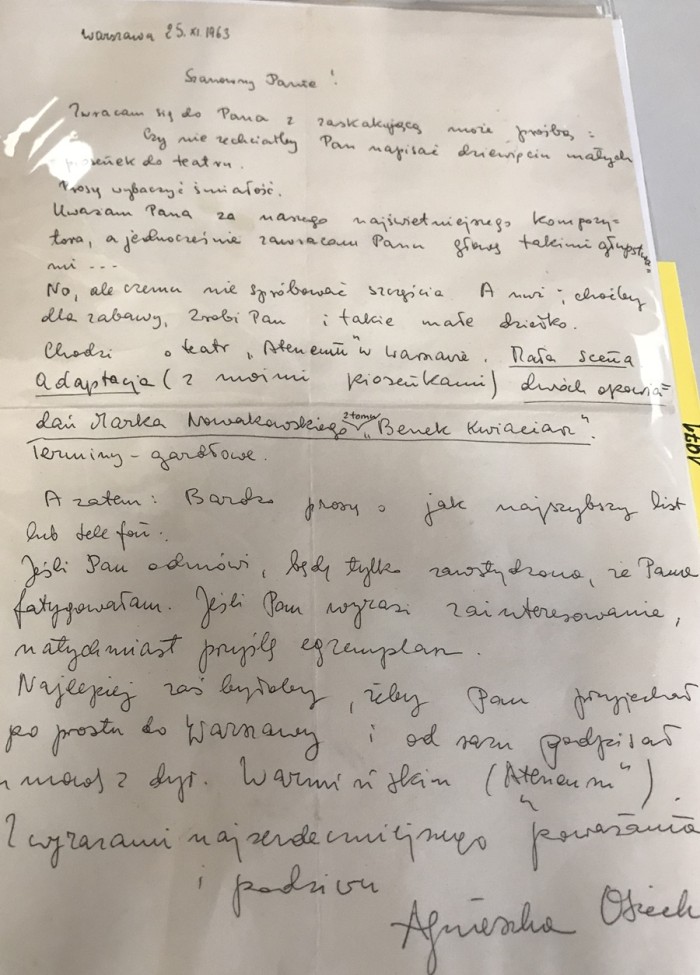 Warszawa 25.XI.1963
Szanowny Panie!
Zwracam się do Pana z zaskakującą może prośbą:
Czy nie zechciałby Pan napisać dziewięciu małych
piosenek do teatru.
Proszę wybaczyć śmiałość.
Uważam Pana za naszego najświetniejszego kompozy-
tora, a jednocześnie zawracam Panu głowę takimi głupstwa-
mi ---
No, ale czemu nie spróbować szczęścia. A nuż; choćby
dla zabawy, zrobi Pan i takie małe dziełko.
Chodzi o teatr „Ateneum" w Warszawie. Mała scena
adaptacja (z moimi piosenkami) dwóch opowia-
dań Marka Nowakowskiego z tomu „Benek Kwiaciarz".
Terminy - gardłowe.
A zatem: Bardzo proszę o jak najszybszy list
lub telefon.
Jeśli Pan odmówi, będę tylko zawstydzona, że Pana
fatygowałam. Jeśli Pan wyrazi zainteresowanie,
natychmiast przyślę egzemplarz.
Najlepiej zaś byłoby, żeby Pan przyjechał
po prostu do Warszawy i od razu podpisał
umowę z dyr. Warmińskim („Ateneum").
Z wyrazami najserdeczniejszego poważania
i podziwu
Agnieszka Osieck